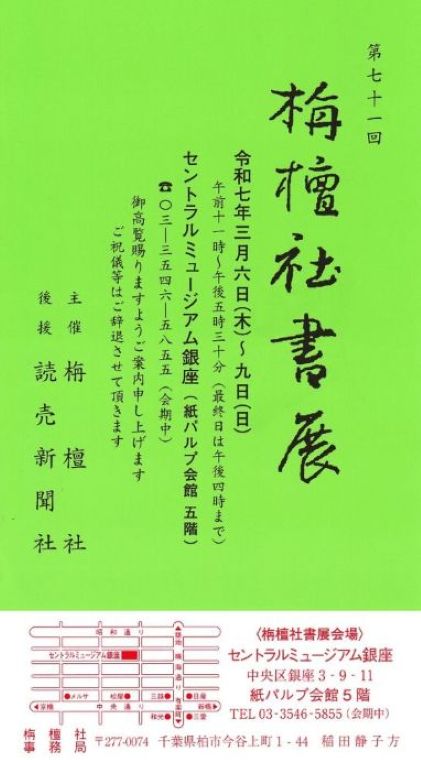 第七十一回
栴檀社書展
令和七年三月六日(木)〜九日(日)
午前十一時〜午後五時三十分(最終日は午後四時まで)
セントラルミュージアム銀座(紙パルプ会館 五階)
☎〇三―三五四六―五八五五(会期中)
御高覧賜りますようご案内申し上げます
ご祝儀等はご辞退させて頂きます
主催 栴檀社
後援 読売新聞社
昭和通り
セントラルミュージアム銀座
晴海通り
●メルサ
松屋●
三越●
●日産
◀京橋
中央通り
新橋▶
和光●
●三愛
〈栴檀社書展会場〉
セントラルミュージアム銀座
中央区銀座3-9-11
紙パルプ会館5階
TEL 03-3546-5855(会期中)
栴檀社
事務局
〒277-0074 千葉県柏市今谷上町1-44 稲田静子方